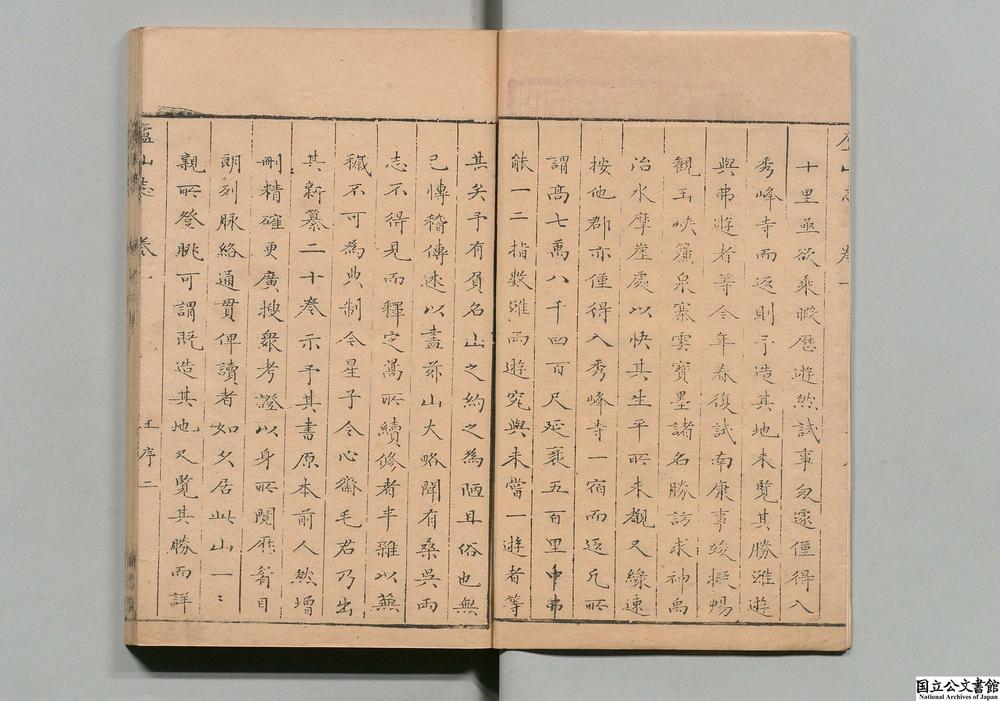 十里亟欲乘暇歷遊然試事匆遽僅得入
秀峰寺而返則予造其地未覽其勝雖遊
與弗遊者等今年春復試南康事竣擬暢
觀玉峽簾泉寨雲寶墨諸名勝訪求神禹
治水摩崖處以快其生平所未覩又緣速
按他郡亦僅得入秀峰寺一宿而返凡所
謂高七萬八千四百尺延袤五百里中弗
能一二指數雖兩遊究與未嘗一遊者等
其矣予有負名山之約之為陋且俗也無
已愽稽傳述以盡茲山大略聞有桑吳兩
志不得見而釋定暠所續修者半雜以蕪
穢不可為典制今星子令心齋毛君乃出
其新纂二十卷示予其書原本前人然增
刪精確更廣搜衆考證以身所閱歷眉目
朗刻脉絡通貫俾讀者如久居此山一二
親所登眺可謂既造其地又覽其勝而詳
廬山志
卷一
王序
二
国立公文書館
National Archives of Japan